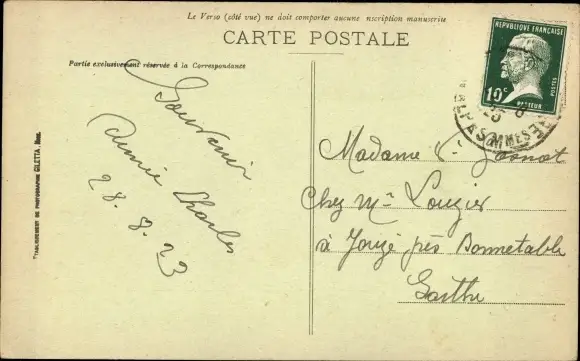 Le Verso (côté vue) ne doit comporter aucune inscription manuscrite
CARTE POSTALE
Partie exclusivement réservée à la Correspondance
RÉPUBLIQUE FRANÇAISE
10c
POSTES
PASTEUR
ALPES MMES
Souvenir
Charles
28.8.23
Madame
Chez Mme Louzier
à Jouzé près Bonnetable
Sarthe
ÉTABLISSEMENT DE PHOTOGRAPHIE GILETTA, Nice.